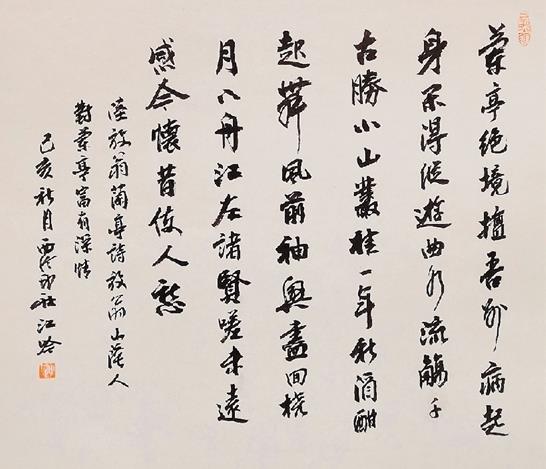 蘭亭絕境擅吾州病起
身閑得縱遊曲水流觴千
古勝小山叢桂一年秋酒酣
起舞風前袖興盡回橈
月下舟江左諸賢嗟未遠
感今懷昔使人愁
陸放翁蘭亭詩放翁山陰人
對蘭亭富有深情
己亥秋月西泠印社江吟